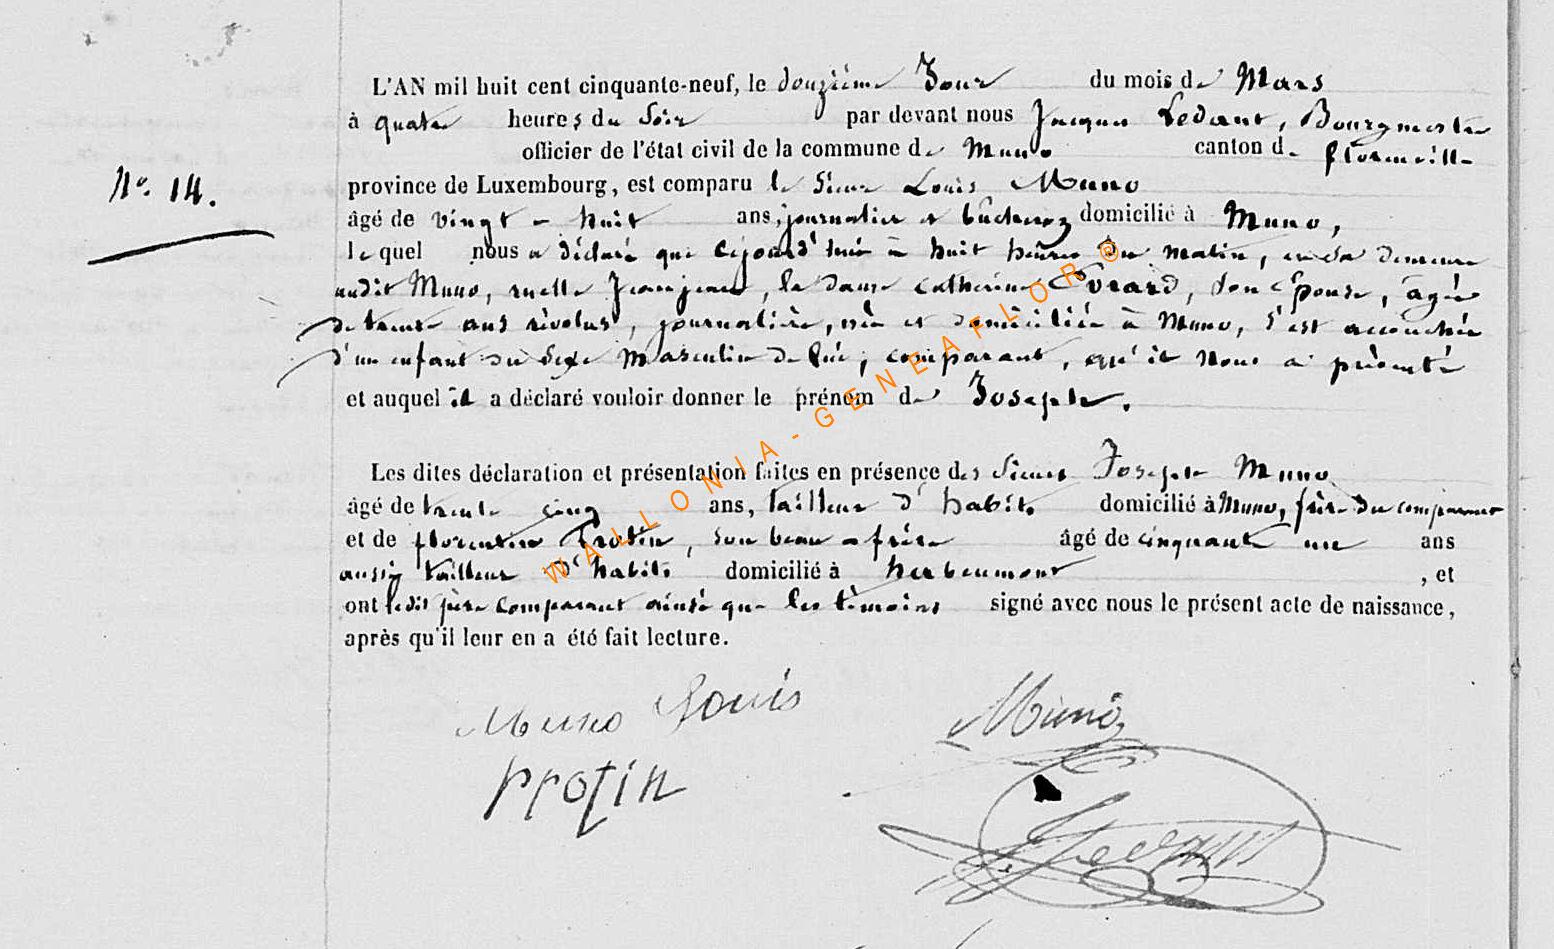 L'AN mil huit cent cinquante-neuf, le douzième Jour du mois de Mars
à quatre heures du Soir par devant nous Jacques Ledant, Bourgmestre
officier de l'état civil de la commune de Muno canton de florenville
N°. 14.
province de Luxembourg, est comparu le Sieur Louis Muno
âgé de vingt-huit ans, journalier et bûcheron domicilié à Muno,
lequel nous a déclaré que cejourd'hui à huit heures du matin, en sa demeure
audit Muno, ruelle Jeanjean, la dame Catherine Evrard, son Epouse, âgée
de trente ans révolus, journalière, née et domiciliée à Muno, s'est accouchée
d'un enfant du Sexe Masculin de lui, comparant, qu'il nous a présenté
et auquel il a déclaré vouloir donner le prénom de Joseph.
Les dites déclaration et présentation faites en présence des Sieurs Joseph Muno
âgé de trente cinq ans, tailleur d'habits domicilié à Muno, frère du comparant
et de florentin Protin, son beau-frère âgé de cinquante un ans
aussi tailleur d'habits domicilié à herbeumont, et
ont ledit père comparant ainsi que les témoins signé avec nous le présent acte de naissance,
après qu'il leur en a été fait lecture.
Muno Louis Muno
Protin
Ledant
WALLONIA-GENEAFLOR®